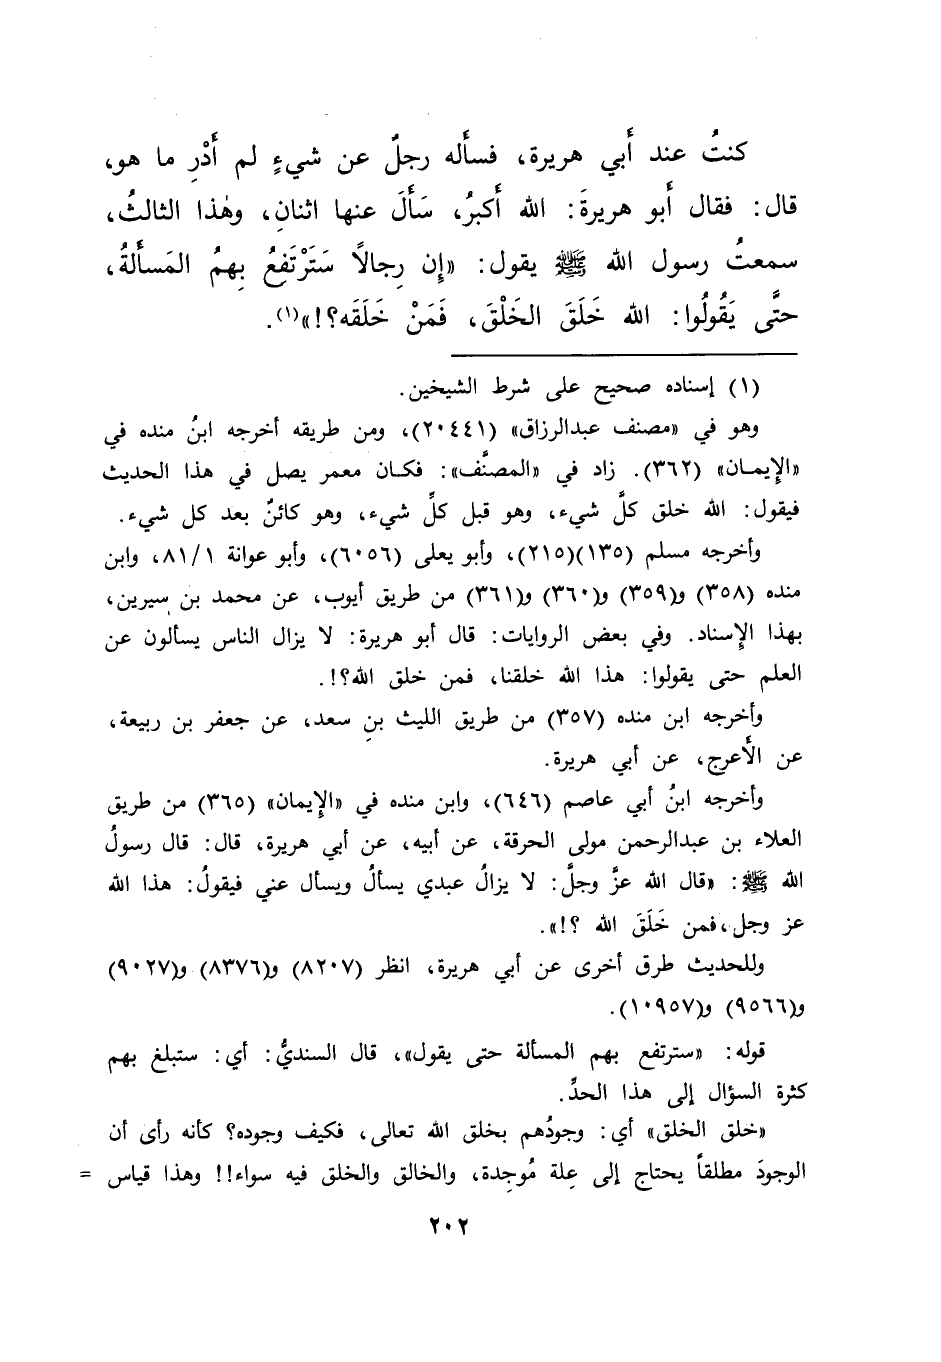 كنتُ عند أَبي هريرة، فسأَله رجلٌ عن شيءٍ لم أَدْرِ ما هو،
قال: فقال أَبو هريرةَ: الله أَكبرُ، سَأَلَ عنها اثنانِ، وهٰذا الثالثُ،
سمعتُ رسول الله ﷺ يقول: «إِن رِجالًا سَتَرْتَفِعُ بِهِمُ المَسأَلةُ،
حتَّى يَقُولُوا: الله خَلَقَ الخَلْقَ، فَمَنْ خَلَقَه؟!»(١).
(١) إسناده صحيح على شرط الشيخين.
وهو في «مصنف عبدالرزاق» (٢٠٤٤١)، ومن طريقه أخرجه ابنُ منده في
«الإِيمـان» (٣٦٢). زاد في «المصنَّف»: فكـان معمر يصل في هذا الحديث
فيقول: الله خلق كلَّ شيء، وهو قبل كلِّ شيء، وهو كائنٌ بعد كل شيء.
وأخرجه مسلم (١٣٥)(٢١٥)، وأبو يعلى (٦٠٥٦)، وأبو عوانة ٨١/١، وابن
منده (٣٥٨) و(٣٥٩) و(٣٦٠) و(٣٦١) من طريق أيوب، عن محمد بن سيرين،
بهذا الإِسناد. وفي بعض الروايات: قال أبو هريرة: لا يزال الناس يسألون عن
العلم حتى يقولوا: هذا الله خلقنا، فمن خلق الله؟!.
وأخرجه ابن منده (٣٥٧) من طريق الليث بنِ سعد، عن جعفر بن ربيعة،
عن الأَعرج، عن أبي هريرة.
وأخرجه ابنُ أبي عاصم (٦٤٦)، وابن منده في «الإِيمان» (٣٦٥) من طريق
العلاء بن عبدالرحمن مولى الحرقة، عن أبيه، عن أبي هريرة، قال: قال رسولُ
الله ﷺ: «قال الله عزَّ وجلَّ: لا يزالُ عبدي يسألُ ويسأل عني فيقولُ: هذا الله
عز وجل، فمن خَلَقَ الله ؟!».
وللحديث طرق أخرى عن أبي هريرة، انظر (٨٢٠٧) و(٨٣٧٦) و(٩٠٢٧)
و(٩٥٦٦) و(١٠٩٥٧).
قوله: «سترتفع بهم المسألة حتى يقول»، قال السنديُّ: أي: ستبلغ بهم
كثرة السؤال إلى هذا الحدِّ.
«خلق الخلق» أي: وجودُهم بخلق الله تعالى، فكيف وجوده؟ كأنه رأى أن
الوجودَ مطلقاً يحتاج إلى عِلة مُوجِدة، والخالق والخلق فيه سواء!! وهذا قياس =
٢٠٢